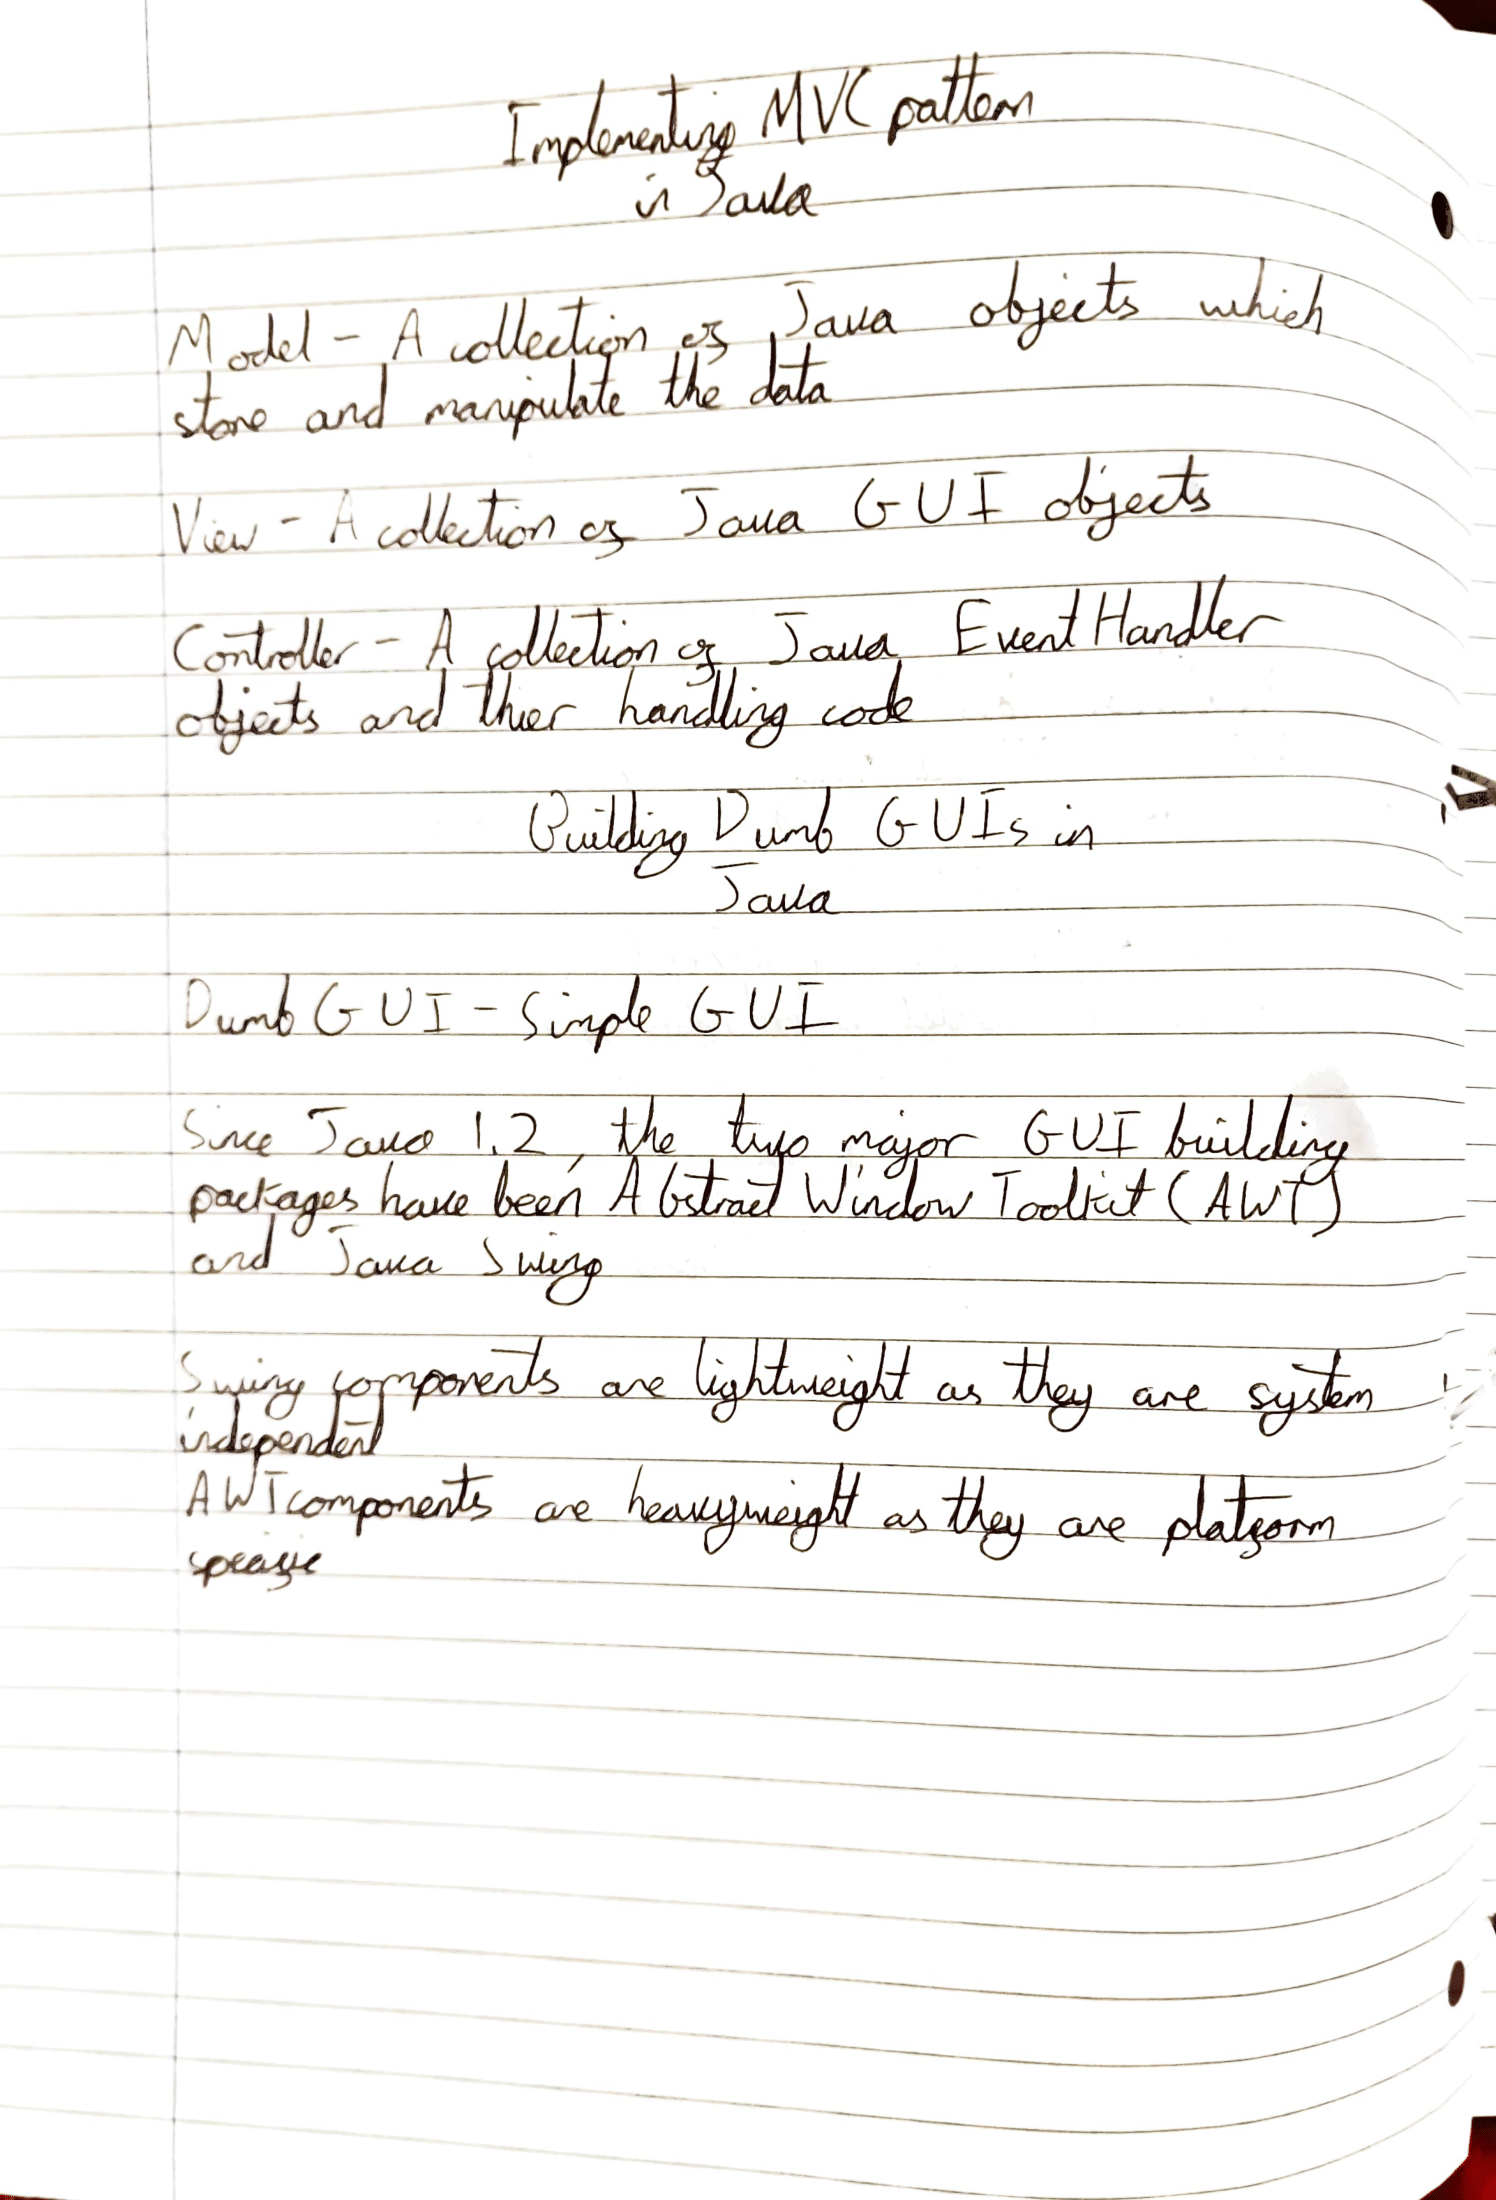 Implementing MVC pattern
in Java
Model - A collection of Java objects which
store and manipulate the data
View - A collection of Java GUI objects
Controller - A collection of Java EventHandler
objects and thier handling code
Building Dumb GUIs in
Java
Dumb GUI - Simple GUI
Since Java 1.2, the two major GUI building
packages have been Abstract Window Toolkit (AWT)
and Java Swing
Swing components are lightweight as they are system
independent
AWT components are heavyweight as they are platform
specific